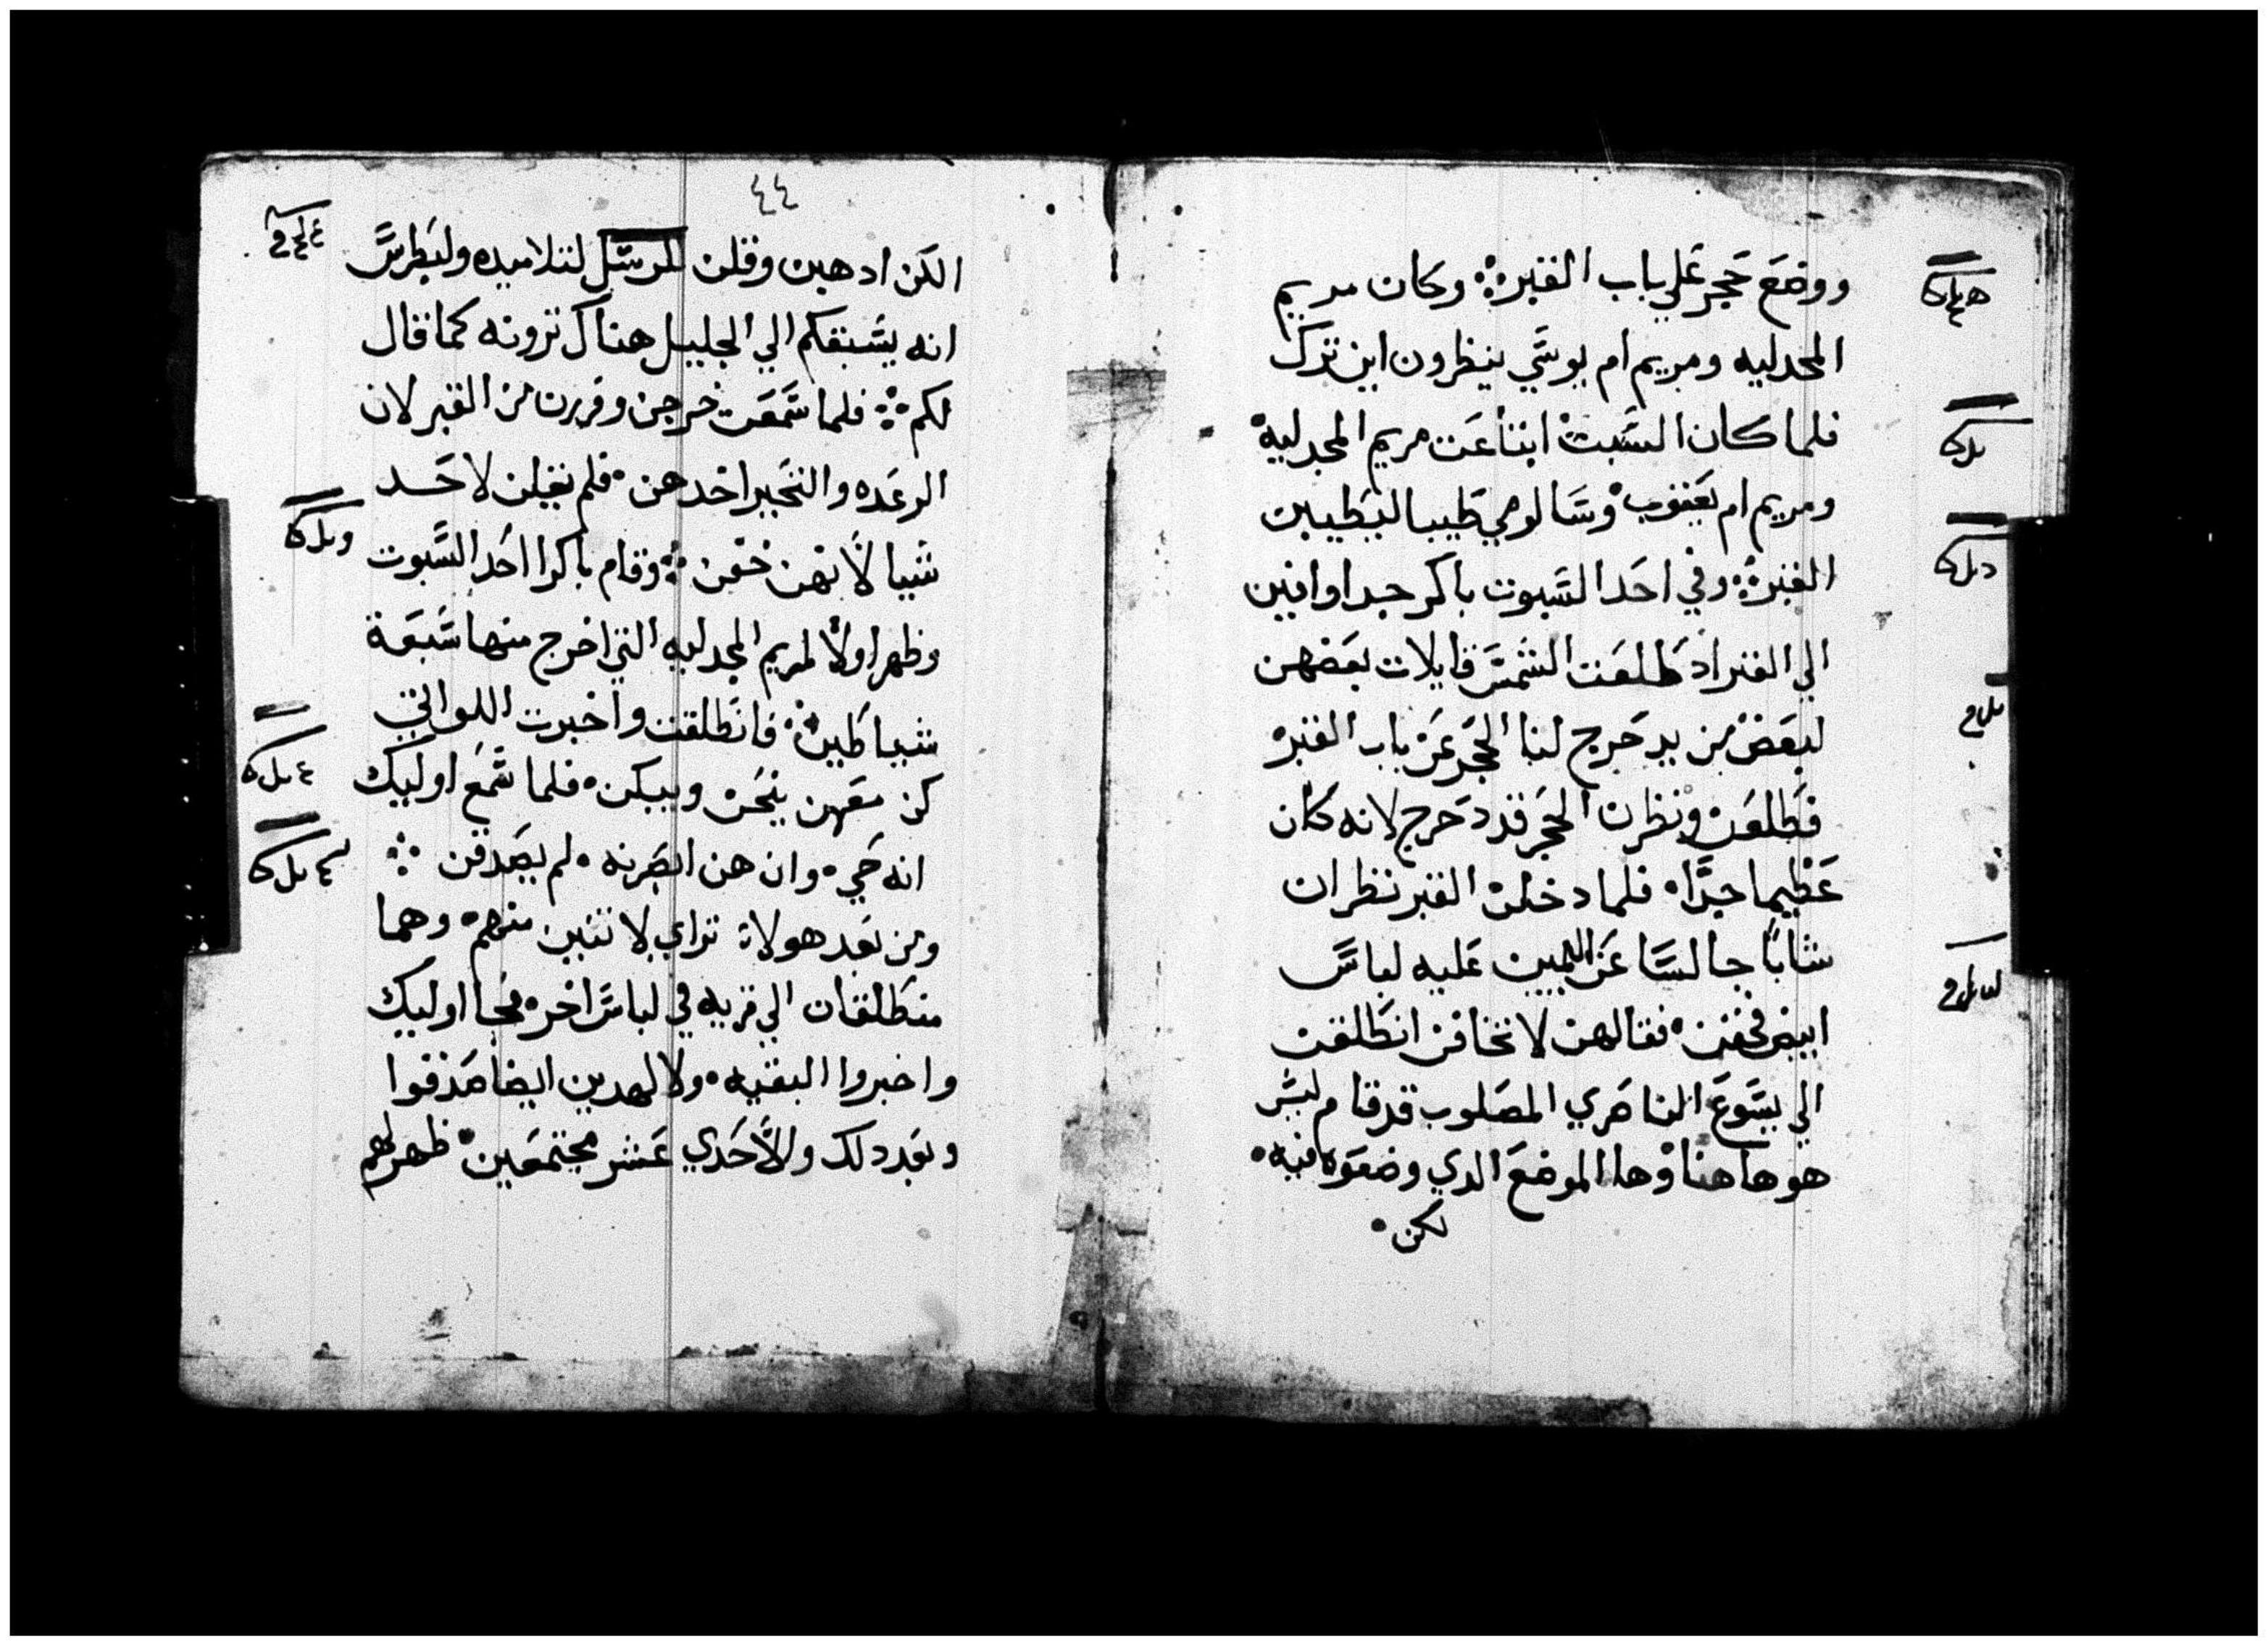 ووضع حجر علي باب القبر ۞ وكان مريم
المجدليه ومريم ام يوسي ينظرون اين ترك
فلما كان السبت ابتاعت مريم المجدليه
ومريم ام يعقوب وسالومي طيبا ليطيبن
القبر ۞ وفي احد السبوت باكر جدا وافين
الي القبر اد طلعت الشمس قايلات بعضهن
لبعض من يدحرج لنا الحجر عن باب القبر
فطلعن ونظرن الحجر قد دحرج لانه كان
عظيما جدًا ۰ فلما دخلن القبر نظران
شابًا جالسا عن اليمين عليه لباس
ابيض فخفن ۰ فقال لهن لا تخافن انطلقن
الي يسوع الناصري المصلوب قد قام ليس
هو هاهنا وها الموضع الدي وضعوه فيه ۰
لكن ۰
٤٤
الكن ادهبن وقلن للرسل لتلاميده ولبطرس
انه يسبقكم الي الجليل هناك ترونه كما قال
لكم ۞ فلما سمعن خرجن وفررن من القبر لان
الرعده والتحير اخدهن ۰ فلم يقلن لاحد
شيا لأنهن خفن ۞ وقام باكرا احد السبوت
وظهر اولاً لمريم المجدليه التي اخرج منها سبعة
شياطين ۞ فانطلقت واخبرت اللواتي
كن معهن ينحن ويبكن ۰ فلما سمع اوليك
انه حي ۰ وان هن ابصرنه ۰ لم يصدقن ۞
ومن بعد هولاة تراي لاتنين منهم ۰ وهما
منطلقان الي قريه في لباس اخر ۰ فجا اوليك
واخبروا البقيه ۰ ولا لهدين ايضا صدقوا
وبعد دلك والأحدي عشر مجتمعين ۰ ظهر لهم